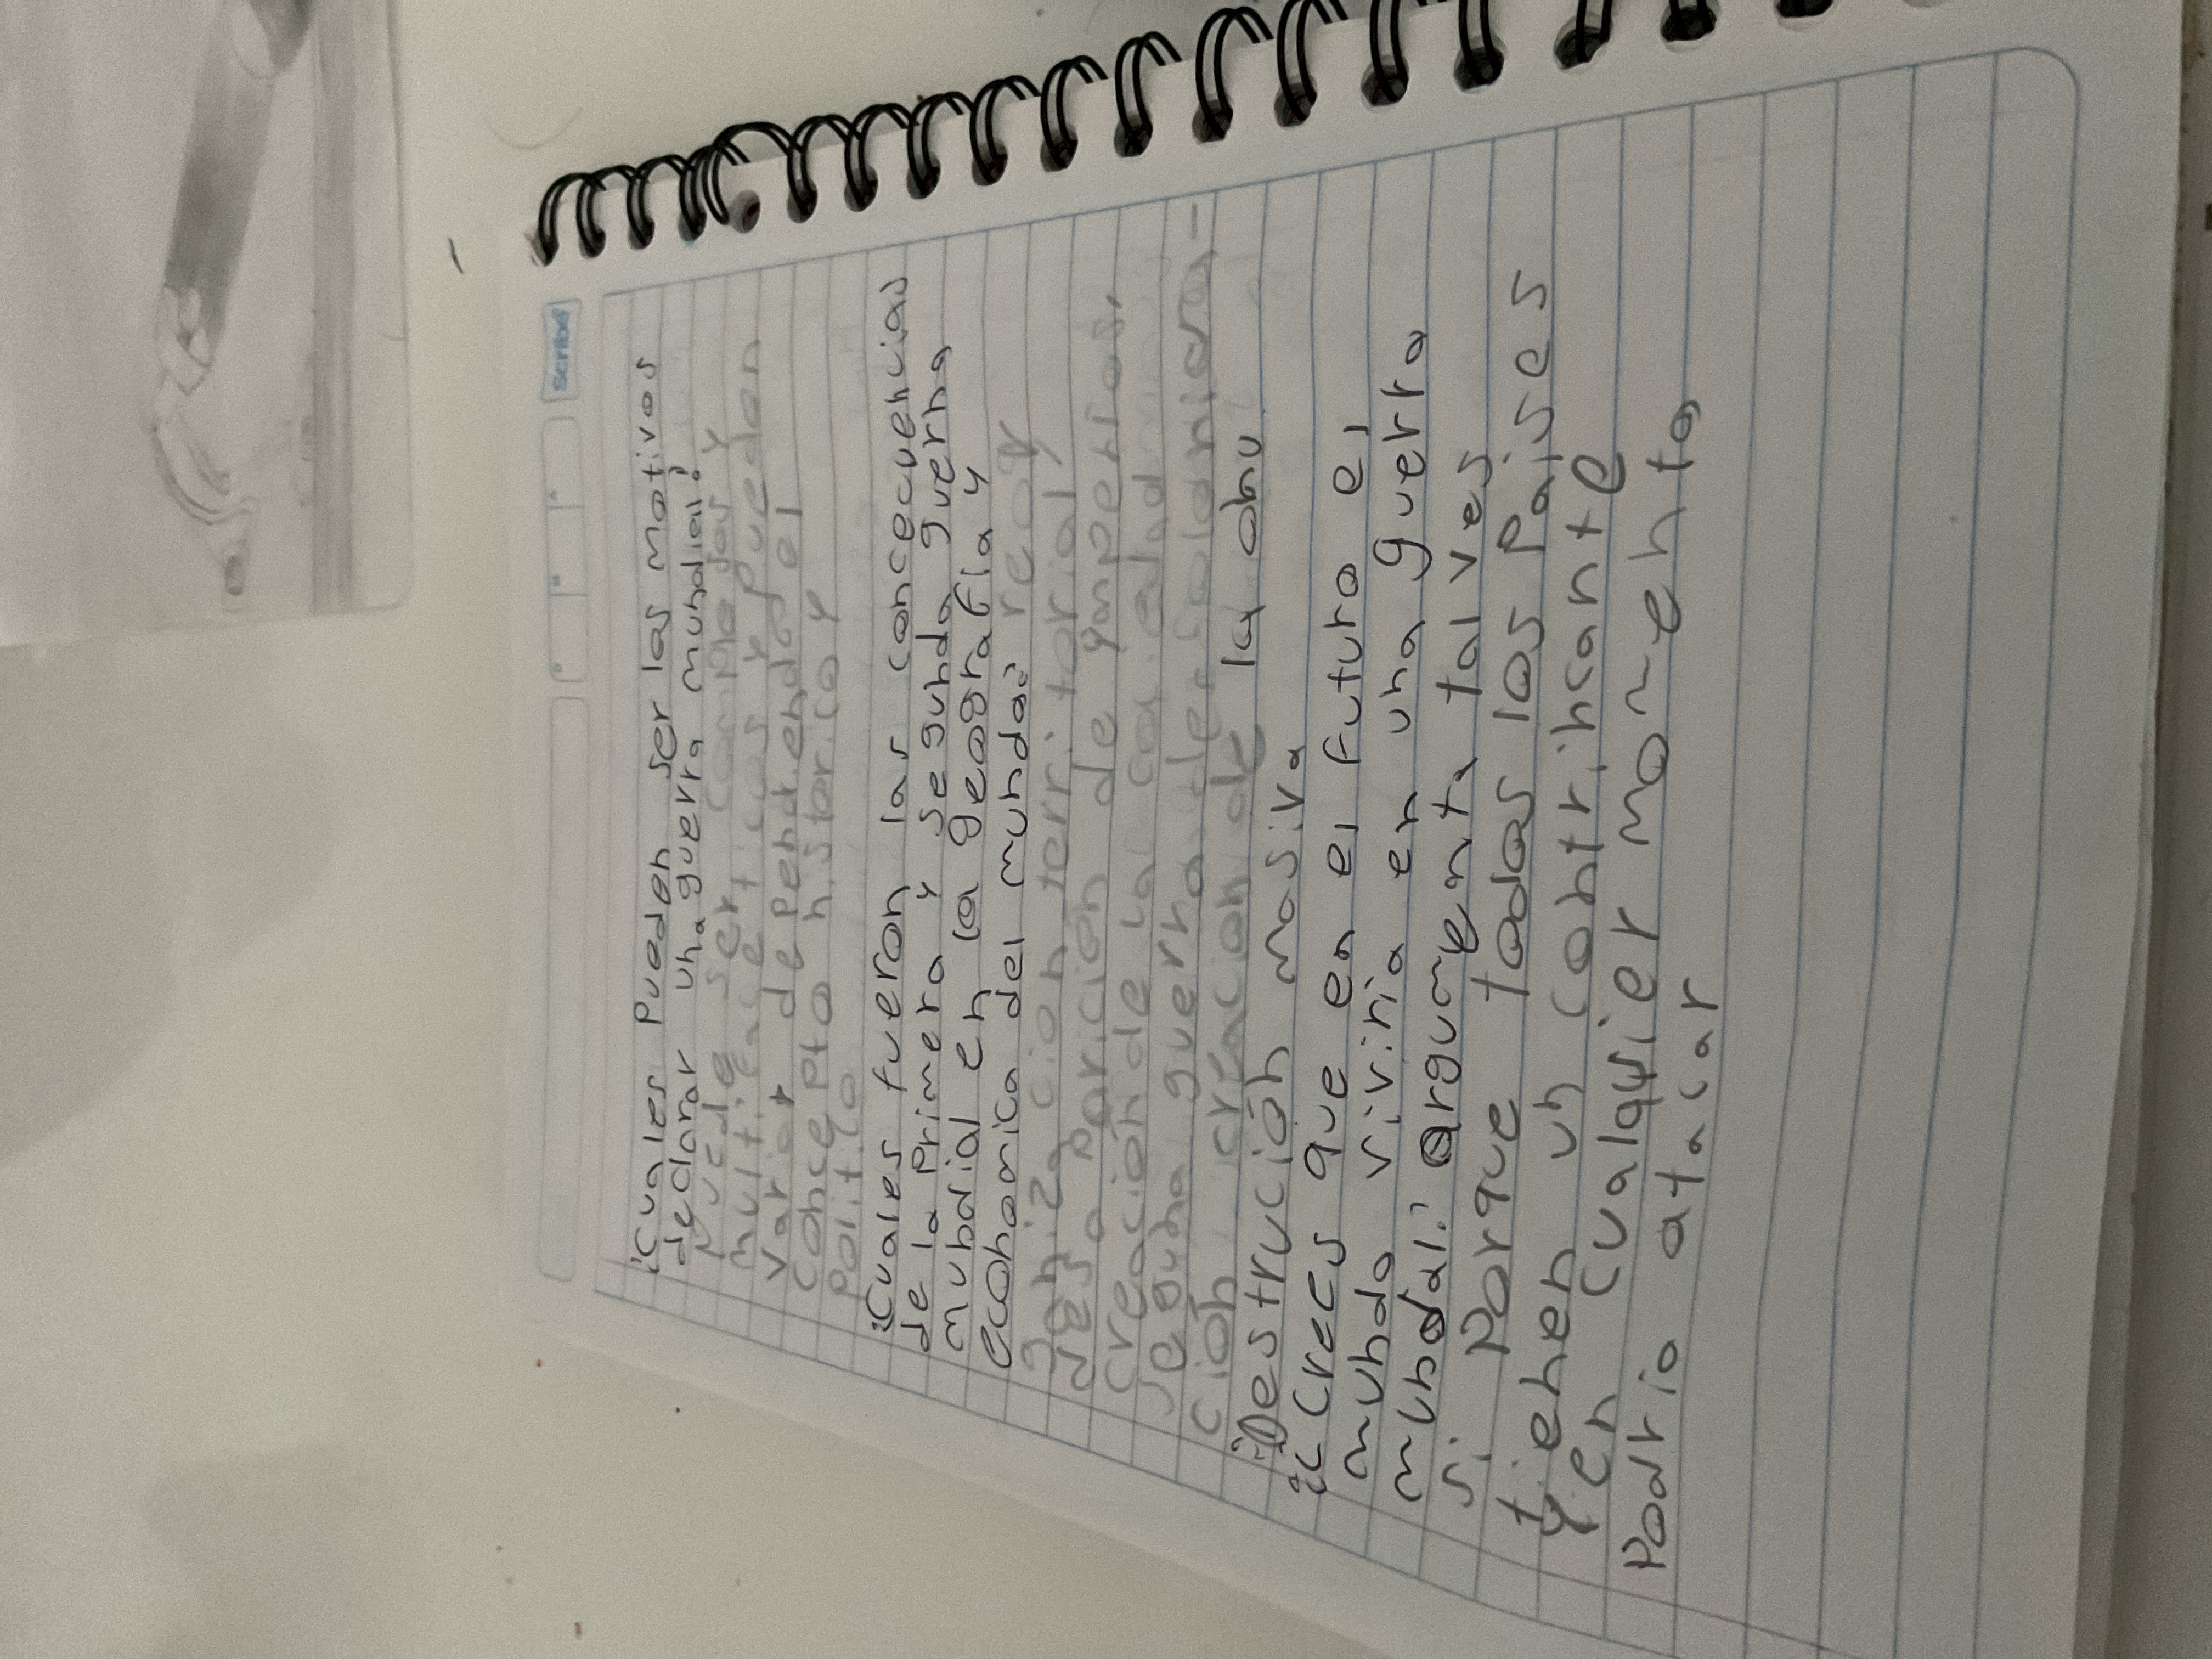 Scribe
¿Cuales Pueden ser los motivos
declarar una guerra mundial?
Puede ser complejas y
multifaceticas y pueden
variar dependiendo el
concepto historico y
politico
¿Cuales fueron las concecuencias
de la Primera y segunda guerra
mundial en la geografia y
economica del mundo?
cion territorial y
Desaparición de imperios,
creación de la
segunda guerra
ción, creación de la onu
Destrución masiva
¿Crees que en el futuro el
mundo viviria en una guerra
mundial? argumenta tal ves
si Porque todos los Paises
tienen un contrincante
y en cualquier momento
Podria atacar